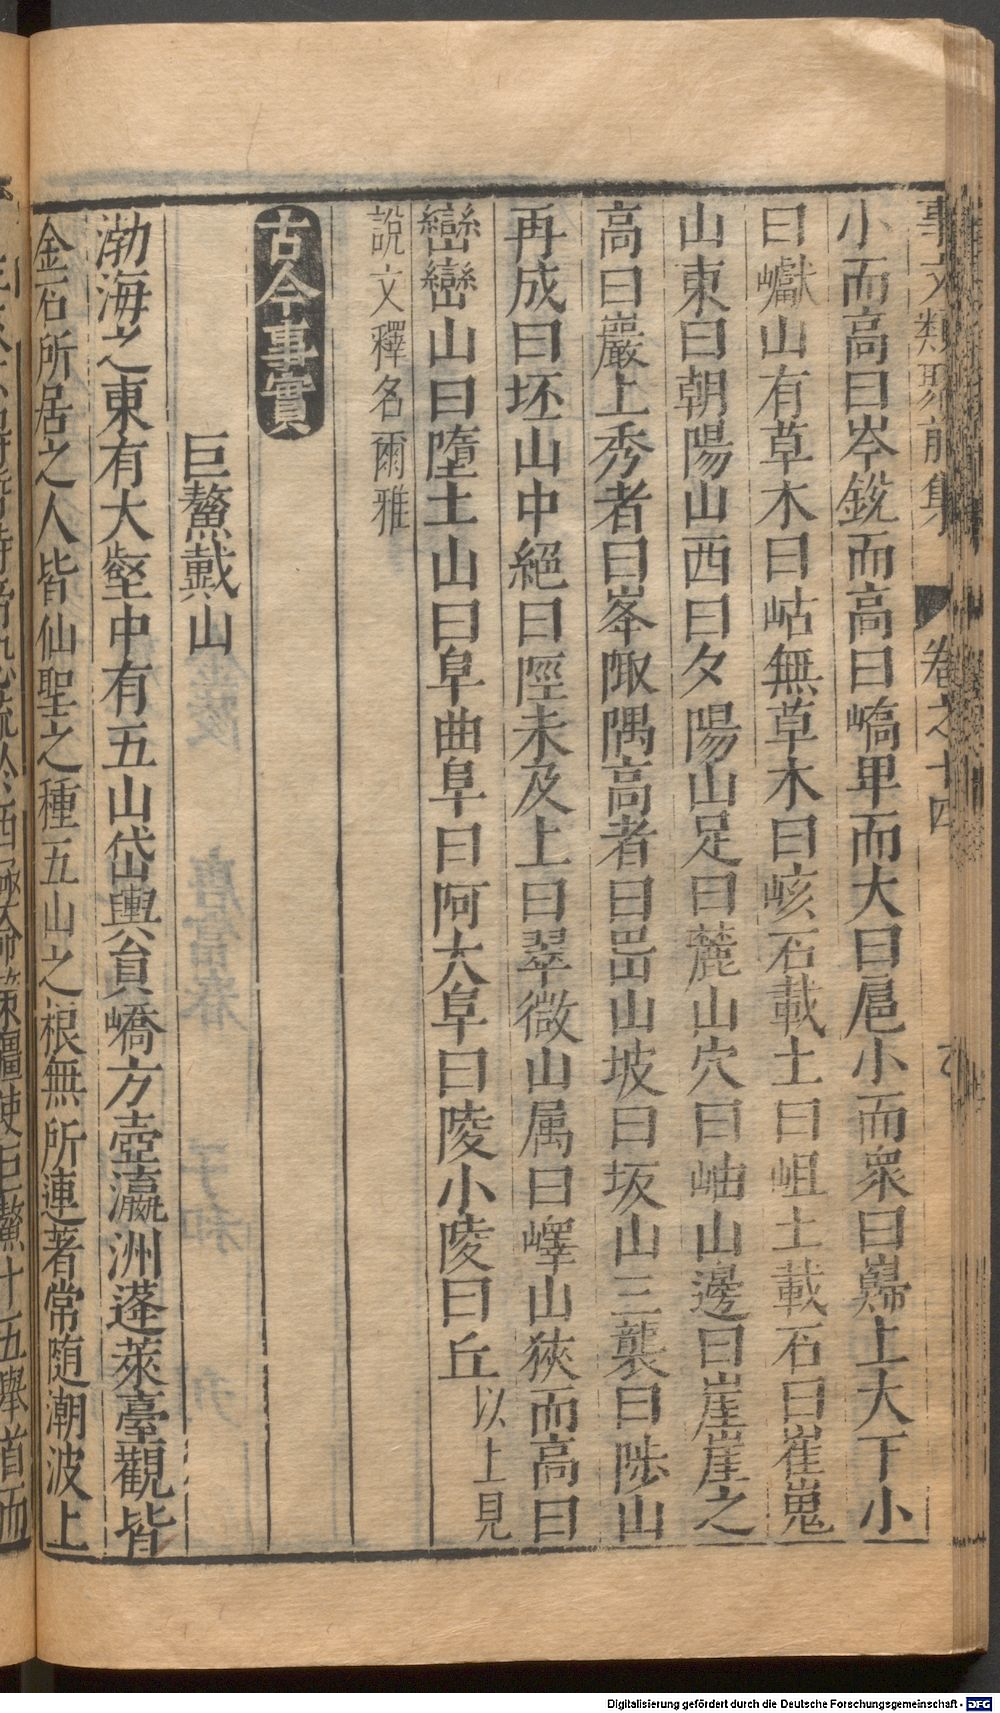 事文類聚前集 卷之十四
小而高曰岑銳而高曰嶠卑而大曰扈小而眾曰巋上大下小
曰巘山有草木曰岵無草木曰峐石載土曰岨土載石曰崔嵬
山東曰朝陽山西曰夕陽山足曰麓山穴曰岫山邊曰崖崖之
高曰巖上秀者曰峯陬隅高者曰岊山坡曰坂山三襲曰陟山
再成曰坯山中絕曰陘未及上曰翠微山属曰嶧山狹而高曰
巒巒山曰墮土山曰阜曲阜曰阿大阜曰陵小陵曰丘以上見
說文釋名爾雅
古今事實
巨鰲戴山
渤海之東有大壑中有五山岱輿員嶠方壺瀛洲蓬萊臺觀皆
金石所居之人皆仙聖之種五山之根無所連著常随潮波上
Digitalisierung gefördert durch die Deutsche Forschungsgemeinschaft - DFG